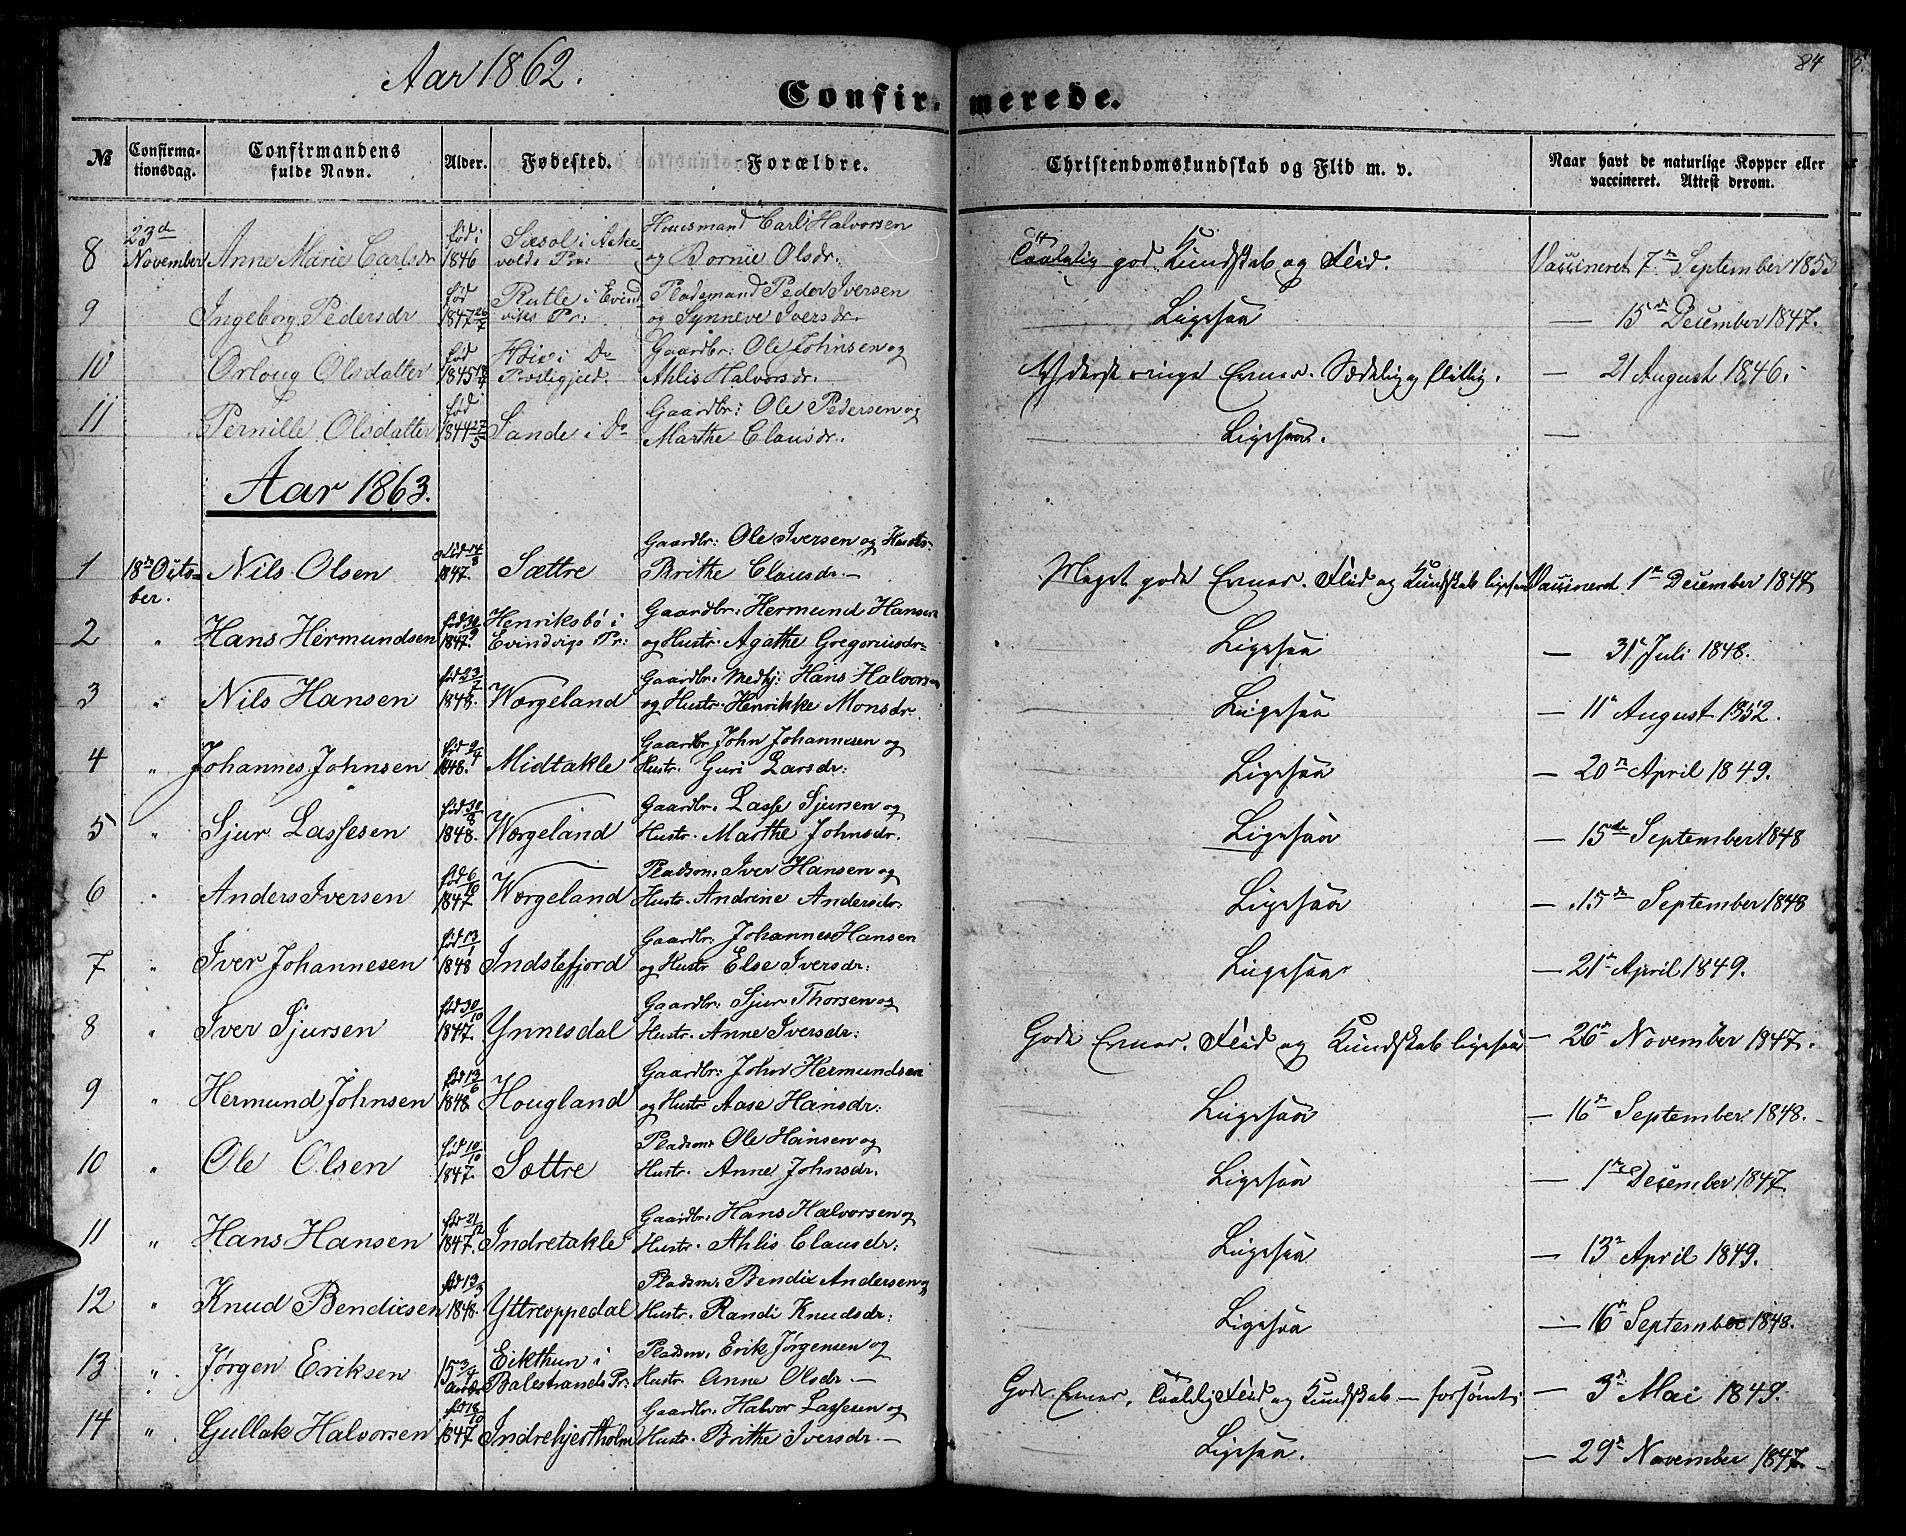 Aar 1862.
84
Confirmerede.
№ Confirmationsdag. Confirmandens fulde Navn. Alder. Fødested. Forældre. Christendomskundskab og Flid m. v. Naar havt de naturlige Kopper eller vaccineret. Attest derom.
8 23d November Anne Marie Carlsdr født 1846 i Askevolds Pr: Huusmand Carl Halvorsen og Olsdr. Taalelig god Kundskab og Flid. Vaccineret 7n September 1853
9 Ingeborg Pedersdr født 1847 26/7 Rutle i Evindviks Pr: Pladsmand Peder Iversen og Synneve Iversdr. Ligesaa — 15de December 1847.
10 Orloug Olsdatter født 1845 i Do Præstegjed. Gaardbr: Ole Johnsen og Ahlis Halvorsdr. Yderst ringe Evner. Sædelig og flittig. — 21 August 1846.
11 Pernille Olsdatter født 1844 27/5 Sande i Do Gaardbr: Ole Pedersen og Marthe Clausdr. Ligesaa. —
Aar 1863.
1 18de October. Nils Olsen født 14/8 1847. Sættre Gaardbr: Ole Iversen og Hustr: Brithe Clausdr. — Meget gode Evner. Flid og Kundskab ligesaa Vaccineret 1n December 1847
2 " Hans Hermundsen født 30/9 1847. Henriksbø i Evindvigs Pr: Gaardbr: Hermund Hansen og Hustr. Agathe Gregoriusdr. Ligesaa — 31t Juli 1848.
3 " Nils Hansen født 23/2 1848. Wærgeland Gaardbr. Medhj: Hans Halvorsen og Hustr. Henrikke Monsdr. Ligesaa — 11t August 1852.
4 " Johannes Johnsen født 9/4 1848. Midtakle Gaardbr John Johannesen og Hustr. Guri Larsdr: Ligesaa — 20n April 1849.
5 " Sjur Lassesen født 30/8 1848. Wærgeland Gaardbr. Lasse Sjursen og Hustr. Marthe Johnsdr. Ligesaa — 15de September 1848
6 " Anders Iversen født 6/10 1847 Wærgeland Pladsm. Iver Hansen og Hustr. Andrine Andersdr. Ligesaa — 15de September 1848
7 " Iver Johannesen født 13/1 1848 Indstefjord Gaardbr: Johannes Hansen og Hustr Else Iversdr: Ligesaa — 21n April 1849.
8 " Iver Sjursen født 30/10 1847. Ynnesdal Gaardbr: Sjur Thorsen og Hustr. Anne Iversdr: Gode Evner. Flid og Kundskab ligesaa — 26n November 1847.
9 " Hermund Johnsen født 13/6 1848. Hougland Gaardbr: John Hermundsen og Hustr Aase Hansdr: Ligesaa — 16n September 1848.
10 " Ole Olsen født 10/10 1847. Sættre Pladsm: Ole Hansen og Hustr. Anne Johnsdr. Ligesaa — 1n December 1847.
11 " Hans Hansen født 21/12 1847. Indretakle Gaardbr: Hans Halvorsen og Hustr. Ahlis Clausdr. Ligesaa — 13n April 1849.
12 " Knud Bendixsen født 13/3 1848. Yttreoppedal Pladsm. Bendix Andersen og Hustr. Randi Knudsdr: Ligesaa — 16n September 1848.
13 " Jørgen Eriksen 15 3/4 Aar Eikthun i Balestrands Pr: Pladsm. Erik Jørgensen og Hustr. Anne Olsdr. — Gode Evner. Taalelig Flid og Kundskab — forsømt — 3n Mai 1849.
14 " Gullak Halvorsen født 18/10 1847 Indrehjertholm Gaardbr: Halvor Lassesen og Hustr. Brithe Iversdr. — Ligesaa. — 29n November 1847.